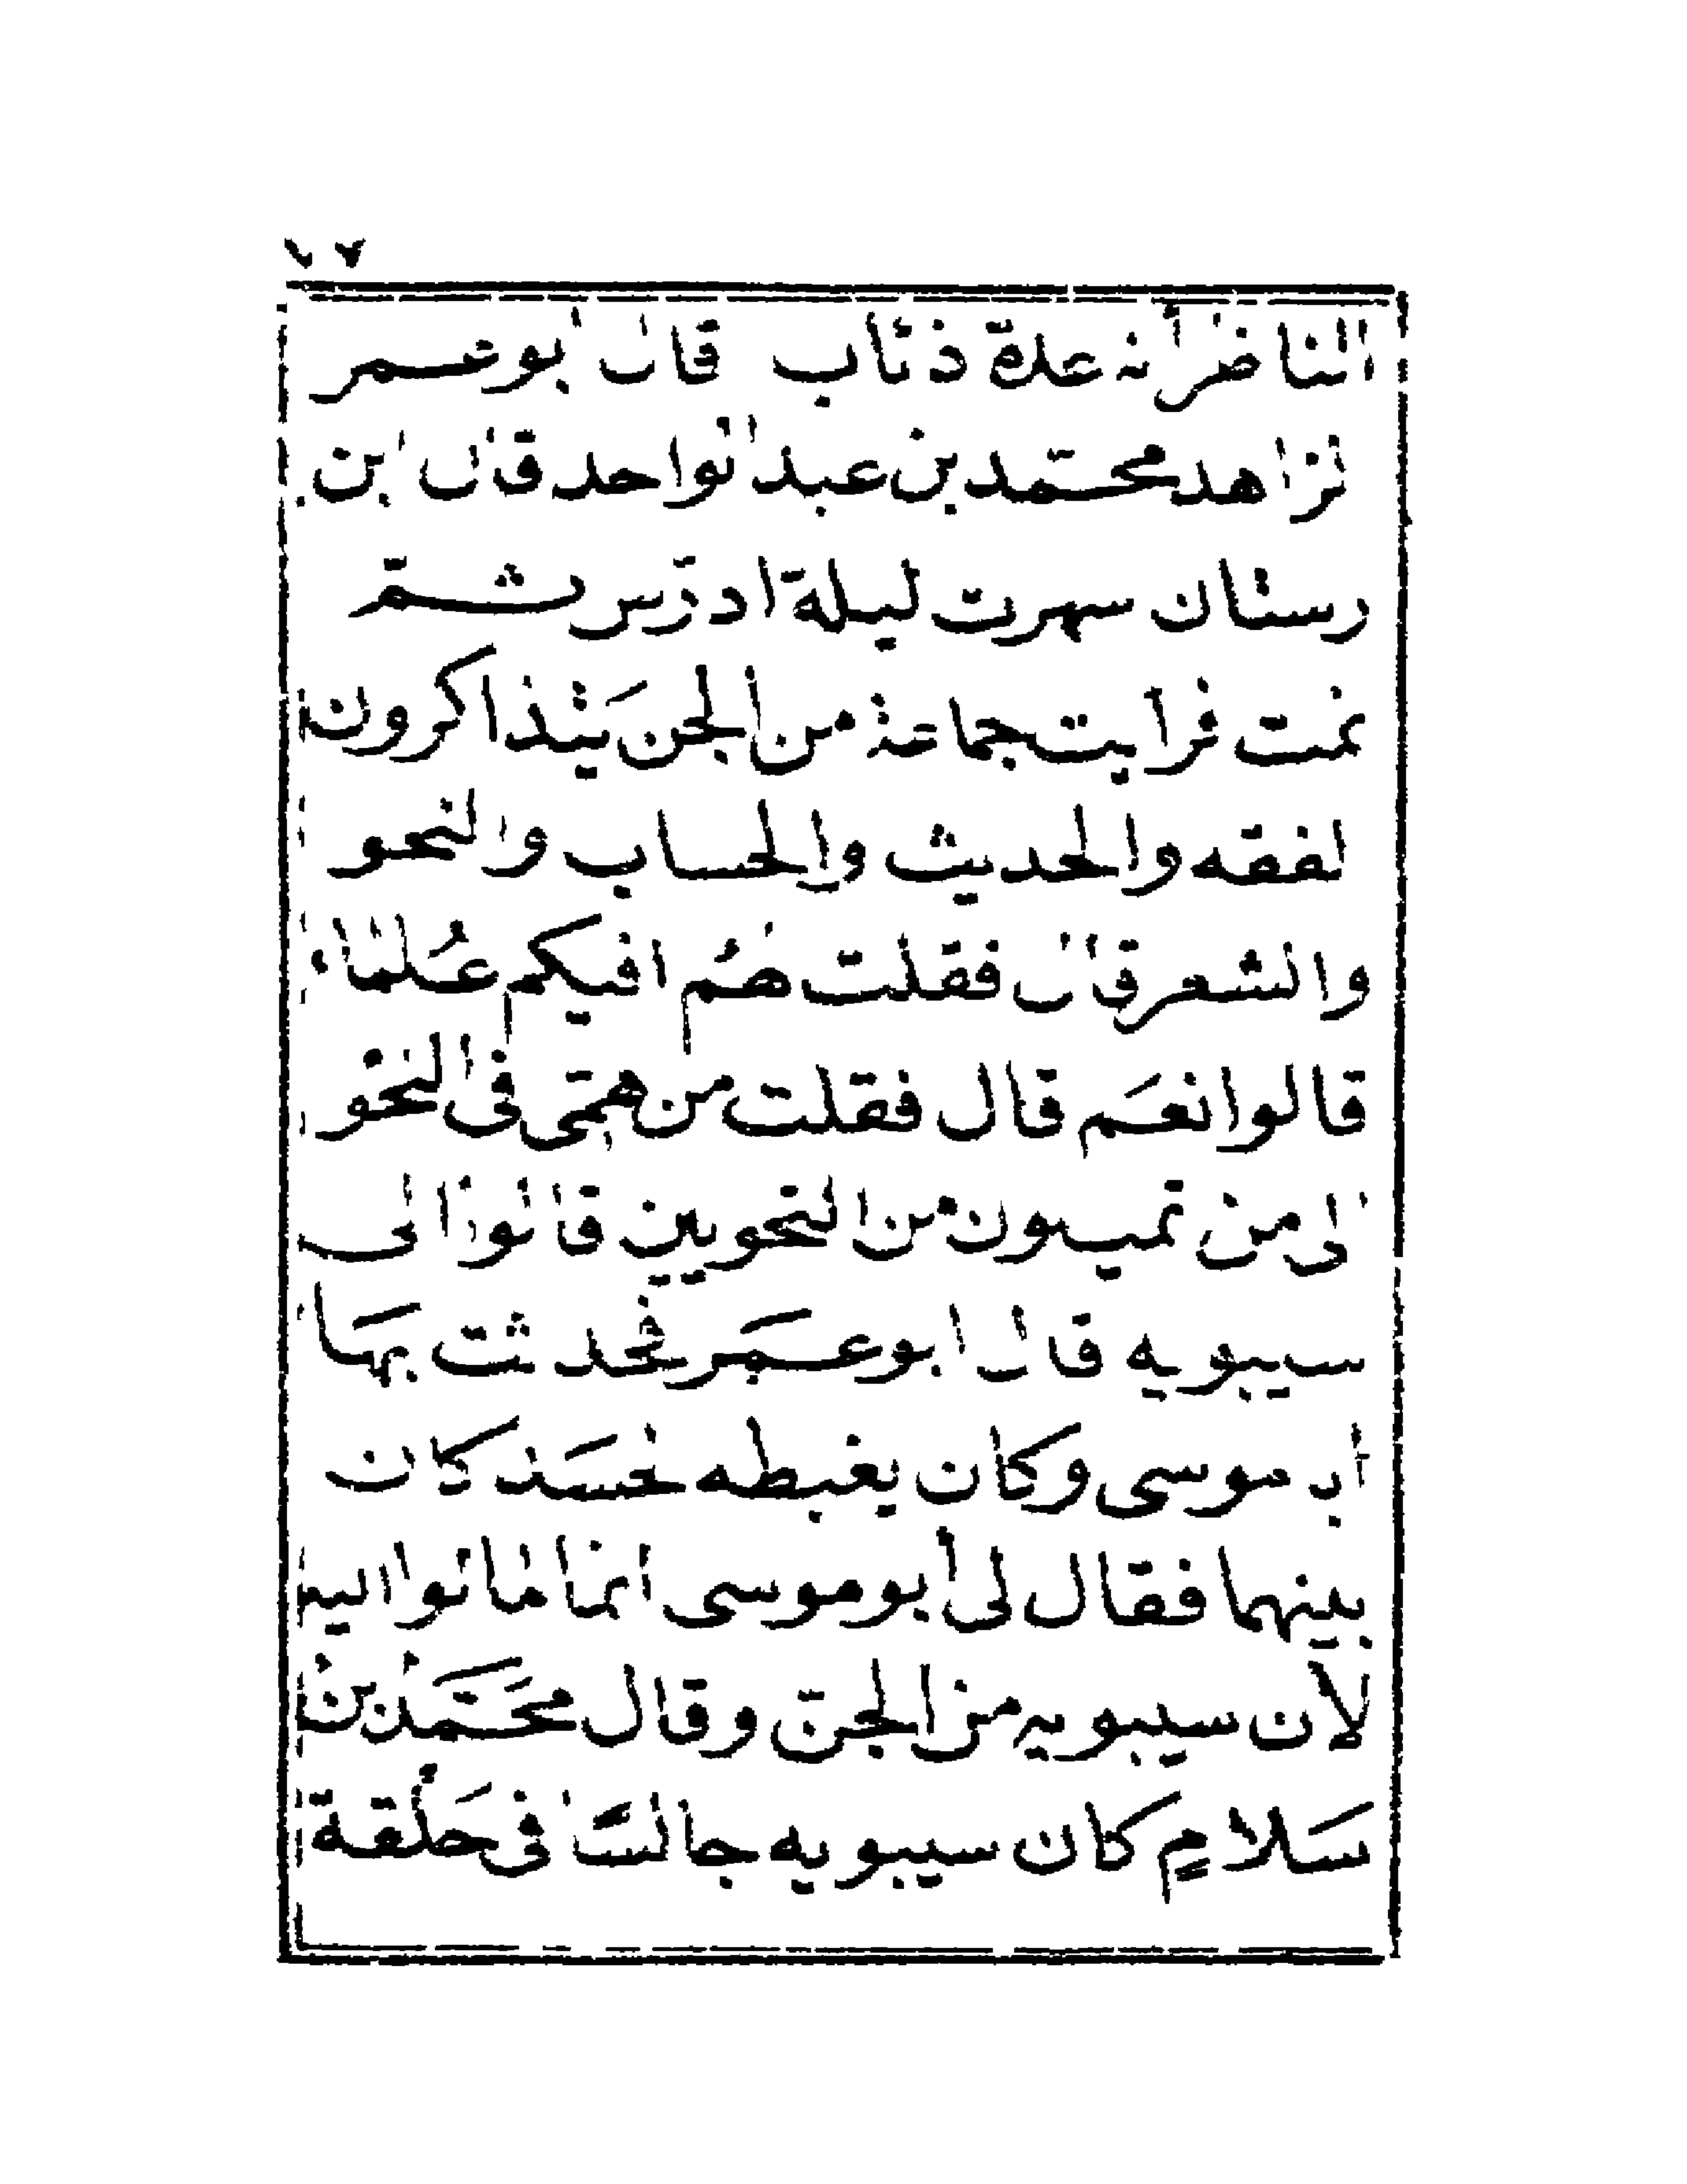 ١٧
الناظر أنه عدة ذئاب قال أبو عمر
الزاهد محمّد بن عبد الواحد قال ابن
رستان سهرت ليلة ادرّس ثمّ
نمت فرأيت جماعة من الجن يَتذاكرون
الفقه والحديث والحساب والنحو
والشعر قال فقلت لهُم افيكم عُلماء
قالوا نعَم قال فقلت من همّتى فى النحْو
الى من تميلون من النحويين قالوا الى
سيبويه قال ابو عمَر فحدثت بهَا
أبا موسى وكان يغبطه لحسَد كان
بينهما فقال لى أبو موسى انما مالوا اليه
لأن سيبويه من الجنّ وقال محَمَّد بن
سَلامٍ كان سيبويه جالسًا فى حَلْقة